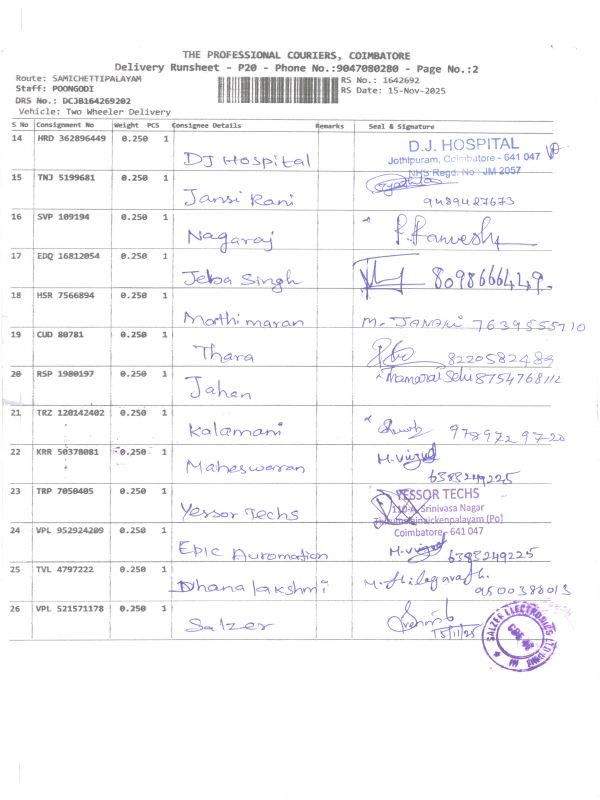 THE PROFESSIONAL COURIERS, COIMBATORE
Delivery Runsheet - P20 - Phone No.:9047080280 - Page No.:2
Route: SAMICHETTIPALAYAM RS No.: 1642692
Staff: POONGODI RS Date: 15-Nov-2025
DRS No.: DCJB164269202
Vehicle: Two Wheeler Delivery
S No Consignment No Weight PCS Consignee Details Remarks Seal & Signature
14 HRD 362896449 0.250 1 DJ Hospital D.J. HOSPITAL
Jothipuram, Coimbatore - 641 047
NHS Regd. No : JM 2057
15 TNJ 5199681 0.250 1 Jansi Rani 9489427673
16 SVP 109194 0.250 1 Nagaraj
17 EDQ 16812054 0.250 1 Jeba Singh 8098666449
18 HSR 7566894 0.250 1 Mathimaran M. JANANI 7639555710
19 CUD 80781 0.250 1 Thara 8220582489
20 RSP 1980197 0.250 1 Jahan 8754768112
21 TRZ 120142402 0.250 1 Kalamani 9789729720
22 KRR 50378081 0.250 1 Maheswaran 6383249225
23 TRP 7050405 0.250 1 Yessor Techs YESSOR TECHS
110-A, Srinivasa Nagar
(Po)
Coimbatore - 641 047
24 VPL 952924209 0.250 1 Epic Automation 6383249225
25 TVL 4797222 0.250 1 Dhanalakshmi 9500388013
26 VPL 521571178 0.250 1 Salzer 15/11/25
SALZER ELECTRONICS LTD